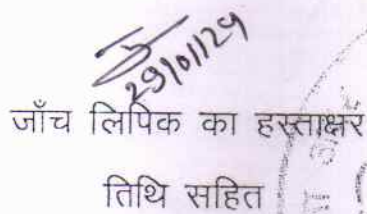 29/01/29
जाँच लिपिक का हस्ताक्षर
तिथि सहित